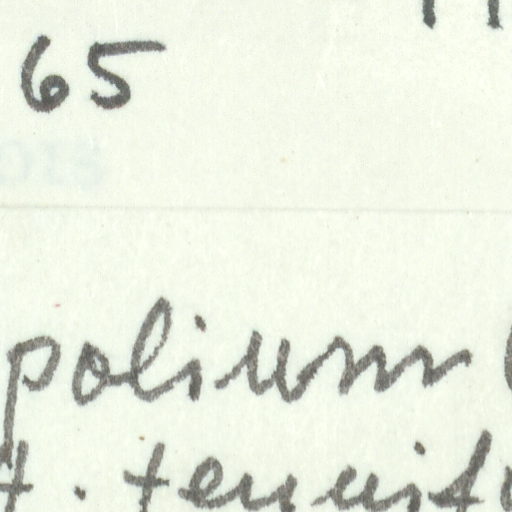 65
polium (
t. tenuifo